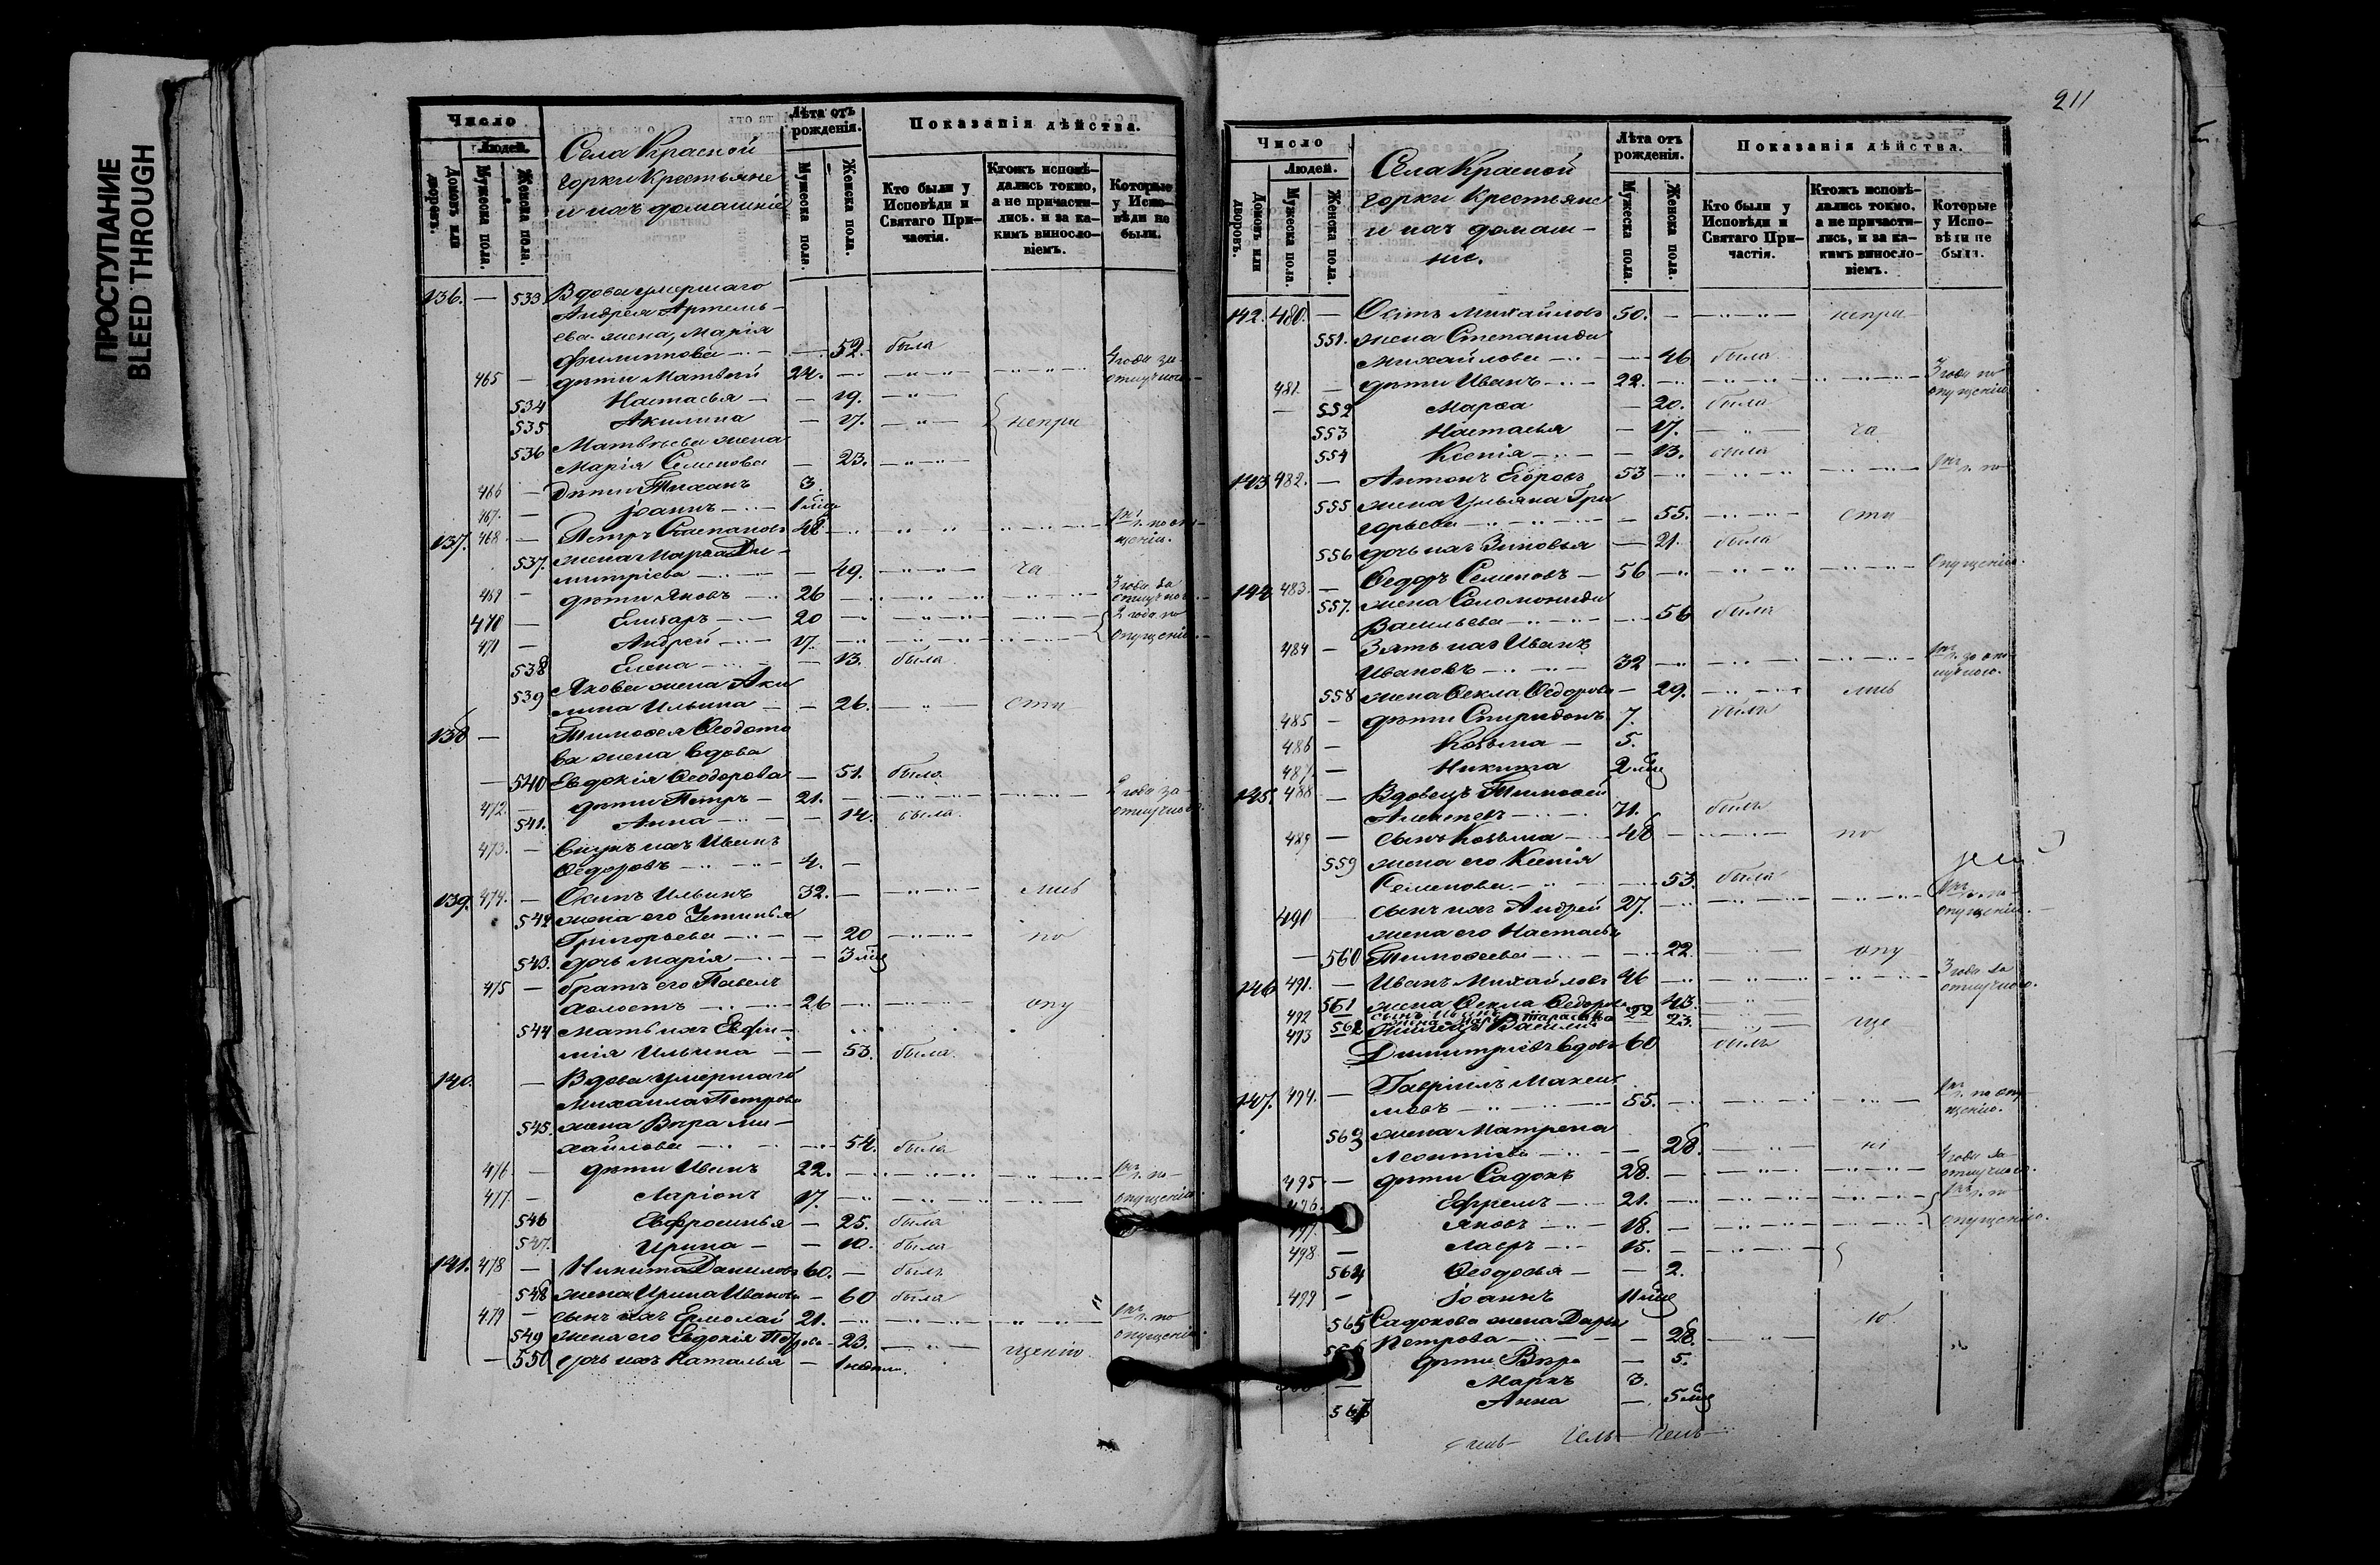 ПРОСТУПАНИЕ
BLEED THROUGH
Число
Людей.
Домовъ или дворовъ.
Мужеска пола.
Женска пола.
Села Красной
горки Крестьяне
и ихъ домашніе
Лѣта отъ рожденія.
Мужеска пола.
Женска пола.
Показанія дѣйства.
Кто были у Исповѣди и Святаго Причастія.
Ктожъ исповѣдались токмо, а не причастились. и за какимъ винословіемъ.
Которые у Исповѣди не были.
136. — 533 Вдова умершаго
Андрея Артемь-
ева жена, Марія
Филиппова — 52. была
465 — дѣти Матвей 24. 4 года за
534 Настасья — 19.
535 Акилина — 17. непри
536 Матвѣева жена
Марія Семенова — 23.
466 — дѣти Тихонъ 3.
467. — Іоаннъ 1 мѣс
137. 468 — Петръ Степановъ 48
537. жена Марѳа Ди-
митріева — 49. ча
469 — дѣти Яковъ 26 3 года за
470 — Елизаръ 20 2 года по
471 — Андрей 17. опущенію
538 Елена — 13. была
539 Якова жена Аки
лина Ильина — 26. сти
138 — Тимоѳея Ѳеодото
ва жена вдова
540 Евдокія Ѳеодорова — 51. была
472. — дѣти Петръ — 21. 2 года за
541. Анна — 14. была
473. — Внукъ ихъ Иванъ
Ѳедоровъ 4. —
139. 474. — Осипъ Ильинъ 32. — лись
542 жена его Устинья
Григорьева — 20 по
543. дочь Марія — 3 мѣс
475 — братъ его Павелъ
холостъ 26 опу
544 Мать ихъ Евфи-
мія Ильина — 53. была
140. — Вдова умершаго
Михаила Петрова
545. жена Вѣра Ми-
хайлова — 54. была
476 — дѣти Иванъ 22.
477 — Ларіонъ 17. опущенію.
546 Евфросинья — 25. была
547. Ирина — 10. была
141. 478 — Никита Даниловъ 60. — былъ
548 жена Ирина Иванова — 60 была
479 — сынъ ихъ Ермолай 21.
549 жена его Евдокія Петрова — 23. щенію
550 дочь ихъ Наталья — 1 недѣли.
211
Число
Людей.
Домовъ или дворовъ.
Мужеска пола.
Женска пола.
Села Красной
горки Крестьяне
и ихъ домаш-
ніе.
Лѣта отъ рожденія.
Мужеска пола.
Женска пола.
Показанія дѣйства.
Кто были у Исповѣди и Святаго Причастія.
Ктожъ исповѣдались токмо, а не причастились, и за какимъ винословіемъ.
Которые у Исповѣди не были.
142. 480. — Осипъ Михайловъ 50. — непри
551. жена Степанида
Михайлова — 46 была
481. — дѣти Иванъ 22. 3 года по
опущенію
552 Марѳа — 20. была
553 Настасья — 17. ча
554 Ксенія — 13. была
143 482. — Антонъ Егоровъ 53
555 жена Ульяна Гри
горьева — 55. сти
556 дочь ихъ Зиновья — 21. была
опущенію.
144 483. — Ѳедоръ Семеновъ — 56
557. жена Соломонида
Васильева 56 была
484 — Зять ихъ Иванъ
Ивановъ 32
558 жена Ѳекла Ѳедорова — 29. лись
485 — дѣти Спиридонъ 7. былъ
486 — Козьма — 5.
487. — Никита 2 мѣс
145. 488 — Вдовецъ Тимоѳей
Алексеевъ 71. былъ
489 — сынъ Козьма 48 — по
559 жена его Ксенія
Семенова 53. была
490 сынъ ихъ Андрей 27.
опущенію.
жена его Настасья
560 Тимоѳеева 22. опу
146 491. — Иванъ Михайловъ 46 3 года за
561 жена Ѳекла Ѳедорова 43.
492 562 сынъ Иванъ 22
жена Марья Тарасова 23. ще
493 Василій
Димитріевъ вдовъ 60 былъ
147. 494. — Гавріилъ Макси
мовъ 55.
563 жена Матрена
Леонтіева 28. ні
495 — дѣти Садокъ 28. — 4 года за
496. Ефремъ 21.
497. Яковъ 18. — опущенію.
498 — Лавръ 15. —
564 Ѳеодосья — 2.
499 — Іоаннъ 11 мѣс
565 Садокова жена Дарья ю
Петрова — 28.
дѣти Вѣра — 5.
— Маркъ 3.
567 Анна — 5 мѣс